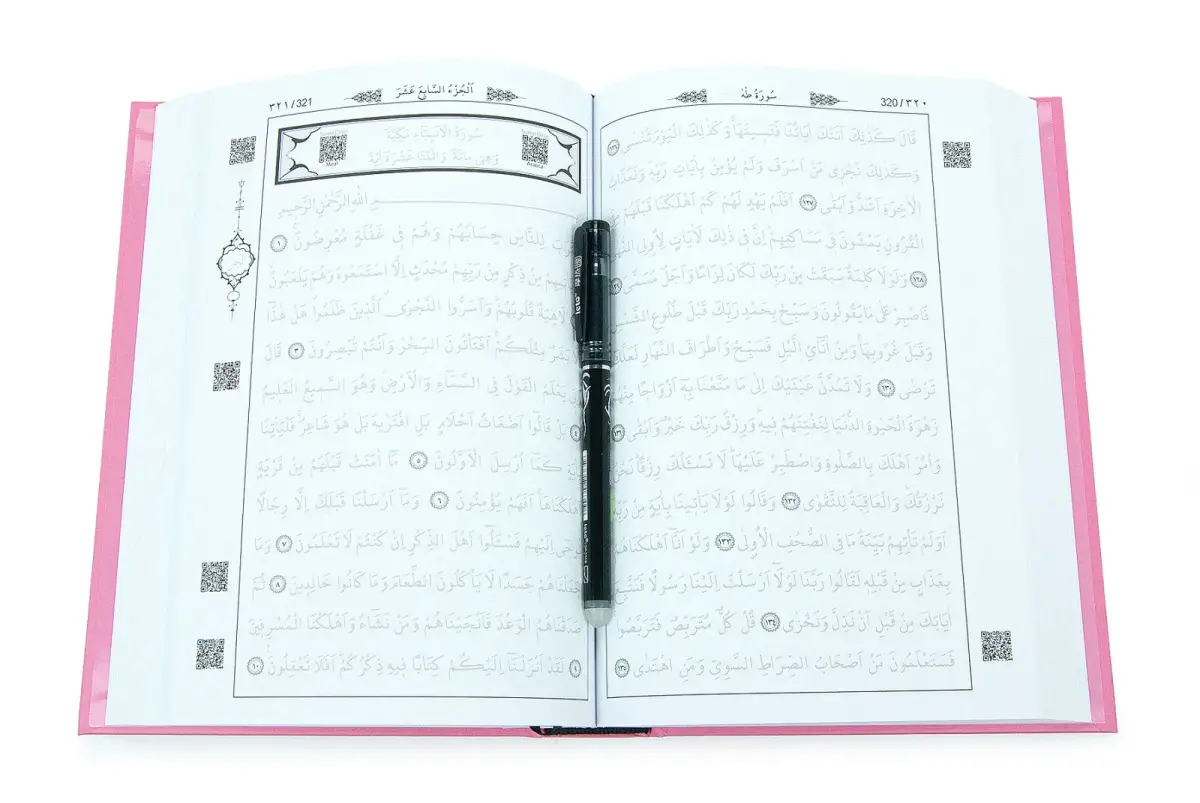 سُورَةُ طٰهٰ
320/٣٢٠
قَالَ كَذٰلِكَ اَتَتْكَ اٰيَاتُنَا فَنَسِيتَهَاۚ وَكَذٰلِكَ الْيَوْمَ تُنْسٰى ١٢٦
وَكَذٰلِكَ نَجْزِى مَنْ اَسْرَفَ وَلَمْ يُؤْمِنْ بِاٰيَاتِ رَبِّهِ وَلَعَذَابُ
الْاٰخِرَةِ اَشَدُّ وَاَبْقٰى ١٢٧ اَفَلَمْ يَهْدِ لَهُمْ كَمْ اَهْلَكْنَا قَبْلَهُمْ مِنَ
الْقُرُونِ يَمْشُونَ فِى مَسَاكِنِهِمْ اِنَّ فِى ذٰلِكَ لَاٰيَاتٍ لِاُولِى
١٢٨ وَلَوْلَا كَلِمَةٌ سَبَقَتْ مِنْ رَبِّكَ لَكَانَ لِزَامًا وَاَجَلٌ مُسَمًّى ١٢٩
فَاصْبِرْ عَلٰى مَا يَقُولُونَ وَسَبِّحْ بِحَمْدِ رَبِّكَ قَبْلَ طُلُوعِ الشَّمْسِ
وَقَبْلَ غُرُوبِهَاۚ وَمِنْ اٰنَٓائِ الَّيْلِ فَسَبِّحْ وَاَطْرَافَ النَّهَارِ لَعَلَّكَ
تَرْضٰى ١٣٠ وَلَا تَمُدَّنَّ عَيْنَيْكَ اِلٰى مَا مَتَّعْنَا بِهِٓ اَزْوَاجًا مِنْهُمْ
زَهْرَةَ الْحَيٰوةِ الدُّنْيَا لِنَفْتِنَهُمْ فِيهِ وَرِزْقُ رَبِّكَ خَيْرٌ وَاَبْقٰى ١٣١
وَأْمُرْ اَهْلَكَ بِالصَّلٰوةِ وَاصْطَبِرْ عَلَيْهَا لَا نَسْـَٔلُكَ رِزْقًا نَحْنُ
نَرْزُقُكَ وَالْعَاقِبَةُ لِلتَّقْوٰى ١٣٢ وَقَالُوا لَوْلَا يَأْتِينَا بِاٰيَةٍ مِنْ رَبِّهِ
اَوَلَمْ تَأْتِهِمْ بَيِّنَةُ مَا فِى الصُّحُفِ الْاُولٰى ١٣٣ وَلَوْ اَنَّٓا اَهْلَكْنَاهُمْ
بِعَذَابٍ مِنْ قَبْلِهِ لَقَالُوا رَبَّنَا لَوْلَٓا اَرْسَلْتَ اِلَيْنَا رَسُولًا فَنَتَّبِعَ
اٰيَاتِكَ مِنْ قَبْلِ اَنْ نَذِلَّ وَنَخْزٰى ١٣٤ قُلْ كُلٌّ مُتَرَبِّصٌ فَتَرَبَّصُوا
فَسَتَعْلَمُونَ مَنْ اَصْحَابُ الصِّرَاطِ السَّوِىِّ وَمَنِ اهْتَدٰى ١٣٥
اَلْجُزْءُ السَّابِعَ عَشَرَ
٣٢١/321
سُورَةُ الْاَنْبِيَٓاءِ مَكِّيَّةٌ
وَهِىَ مِائَةٌ وَاثْنَتَا عَشْرَةَ اٰيَةً
Meal
ـمِ اللهِ الرَّحْمٰنِ الرَّحِيمِ
لِلنَّاسِ حِسَابُهُمْ وَهُمْ فِى غَفْلَةٍ مُعْرِضُونَ ١
مِنْ ذِكْرٍ مِنْ رَبِّهِمْ مُحْدَثٍ اِلَّا اسْتَمَعُوهُ وَهُمْ يَلْعَبُونَ
لَاهِيَةً قُلُوبُهُمْ وَاَسَرُّوا النَّجْوَى الَّذِينَ ظَلَمُوا هَلْ هٰذَٓا
بَشَرٌ مِثْلُكُمْ اَفَتَأْتُونَ السِّحْرَ وَاَنْتُمْ تُبْصِرُونَ ٣ قَالَ
يَعْلَمُ الْقَوْلَ فِى السَّمَٓاءِ وَالْاَرْضِ وَهُوَ السَّمِيعُ الْعَلِيمُ
٤ بَلْ قَالُٓوا اَضْغَاثُ اَحْلَامٍ بَلِ افْتَرٰيهُ بَلْ هُوَ شَاعِرٌ فَلْيَأْتِنَا
كَمَٓا اُرْسِلَ الْاَوَّلُونَ ٥ مَٓا اٰمَنَتْ قَبْلَهُمْ مِنْ قَرْيَةٍ
اَهْلَكْنَاهَا اَفَهُمْ يُؤْمِنُونَ ٦ وَمَٓا اَرْسَلْنَا قَبْلَكَ اِلَّا رِجَالًا
اِلَيْهِمْ فَسْـَٔلُٓوا اَهْلَ الذِّكْرِ اِنْ كُنْتُمْ لَا تَعْلَمُونَ ٧ وَمَا
جَعَلْنَاهُمْ جَسَدًا لَا يَأْكُلُونَ الطَّعَامَ وَمَا كَانُوا خَالِدِينَ ٨ ثُمَّ
صَدَقْنَاهُمُ الْوَعْدَ فَاَنْجَيْنَاهُمْ وَمَنْ نَشَٓاءُ وَاَهْلَكْنَا الْمُسْرِفِينَ
٩ لَقَدْ اَنْزَلْنَٓا اِلَيْكُمْ كِتَابًا فِيهِ ذِكْرُكُمْ اَفَلَا تَعْقِلُونَ ١٠
leto